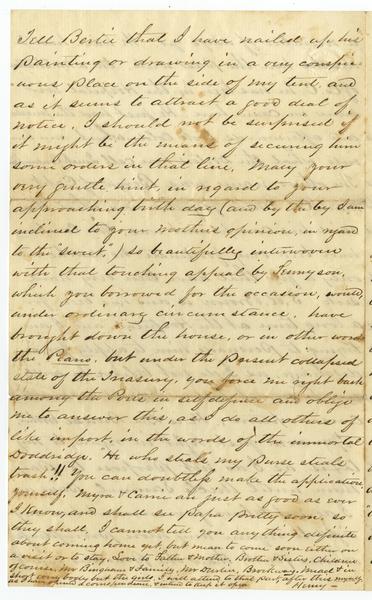 Tell Bertie that I have nailed up his
painting or drawing in a very conspic-
uous place on the side of my tent, and
as it seems to attract a good deal of
notice, I should not be surprised if
it might be the means of securing him
some orders in that line. Mary your
very gentle hint, in regard to your
approaching birth day (and by the by I am
inclined to your mothers opinion, in regard
to the "sweet,") so beautifully interwoven
with that touching appeal by Tennyson,
which you borrowed for the occasion, would,
under ordinary circumstance, have
brought down the house, or in other words
the Piano, but under the present collapsed
state of the Treasury, you force me right back
among the Poets in self defence and oblige
me to answer this, as I do all others of
like import, in the words of the immortal
Doddridge. He who steals my purse steals
trash!! You can doubtless make the application
yourself. Myra & Carrie are just as good as ever
I know, and shall see Papa pretty soon, so
they shall. I cannot tell you anything definite
about coming home yet but mean to come soon either on
a visit or to stay. Love to Father & Mother, Brothers & Sisters, Children
of course, Mr Bingham & Family, Mr
short every body but the girls. I will attend to that part, after this myself
intend to keep it open
Henry